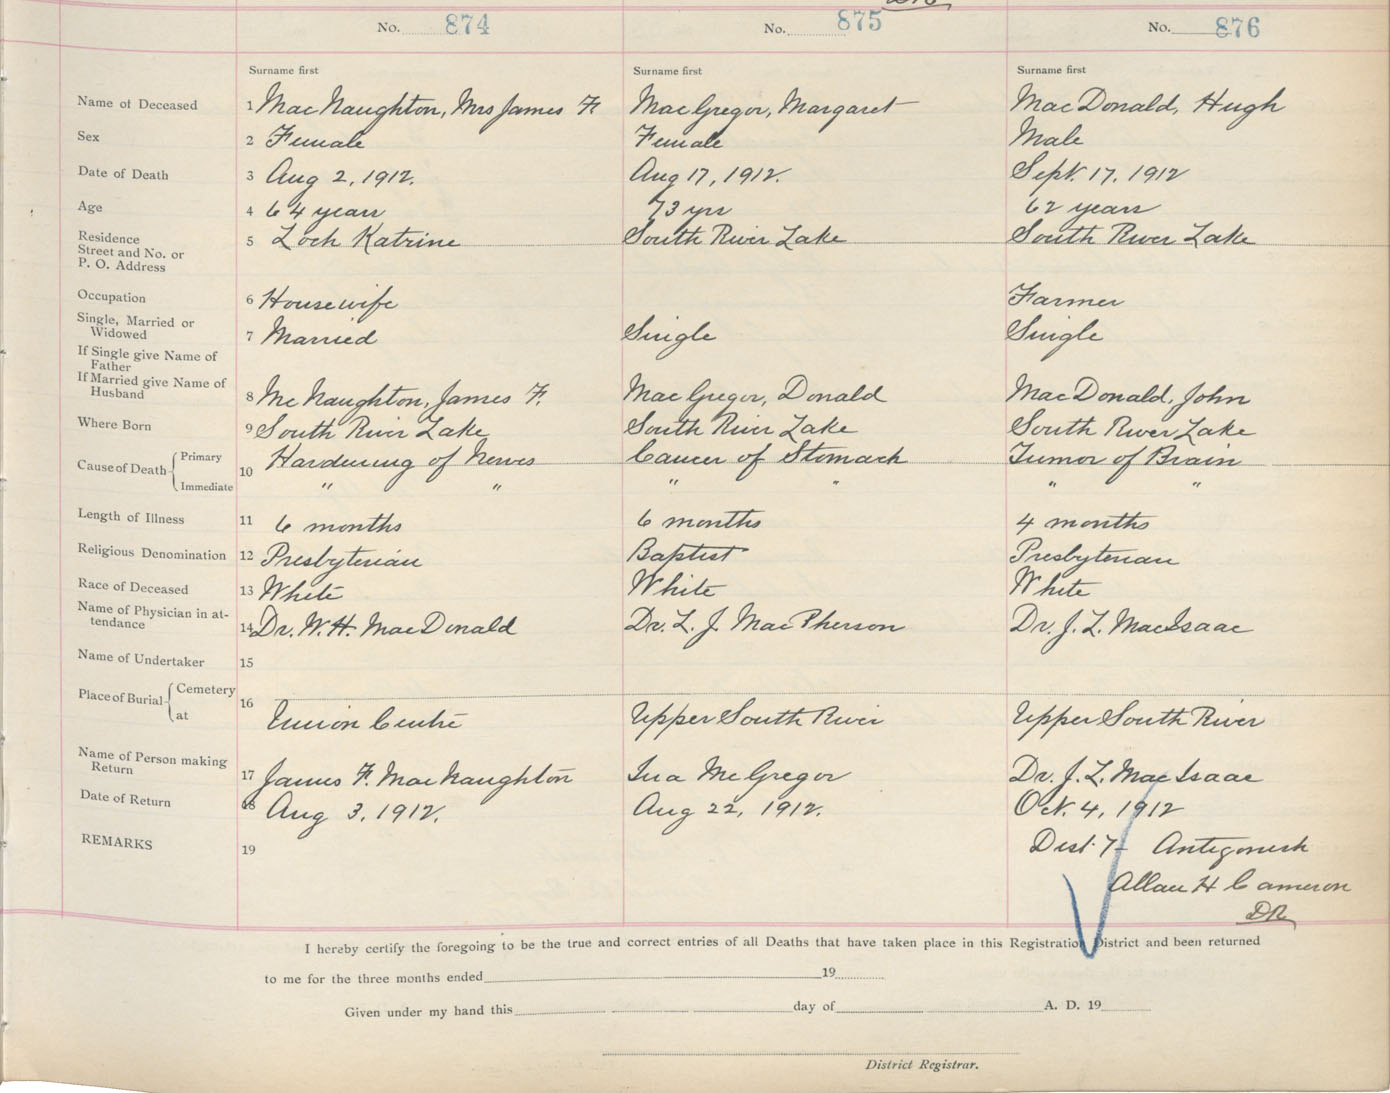 No. 874 No. 875 No. 876
Surname first Surname first Surname first
Name of Deceased 1 MacNaughton, Mrs James F. MacGregor, Margaret MacDonald, Hugh
Sex 2 Female Female Male
Date of Death 3 Aug 2, 1912. Aug 17, 1912. Sept. 17, 1912
Age 4 64 years 73 yrs 62 years
Residence
Street and No. or
P. O. Address 5 Loch Katrine South River Lake South River Lake
Occupation 6 Housewife Farmer
Single, Married or
Widowed 7 Married Single Single
If Single give Name of
Father
If Married give Name of
Husband 8 McNaughton, James F. MacGregor, Donald MacDonald, John
Where Born 9 South River Lake South River Lake South River Lake
Cause of Death Primary 10 Hardening of Nerves Cancer of Stomach Tumor of Brain
Immediate " " " " " "
Length of Illness 11 6 months 6 months 4 months
Religious Denomination 12 Presbyterian Baptist Presbyterian
Race of Deceased 13 White White White
Name of Physician in at-
tendance 14 Dr. W. H. MacDonald Dr. L. J. MacPherson Dr. J. L. MacIsaac
Name of Undertaker 15
Place of Burial Cemetery 16
at Union Centre Upper South River Upper South River
Name of Person making
Return 17 James F. MacNaughton Ina McGregor Dr. J. L. MacIsaac
Date of Return 18 Aug 3, 1912. Aug 22, 1912. Oct. 4, 1912
REMARKS 19 Dist. 7 - Antigonish
Allan H Cameron
DR
I hereby certify the foregoing to be the true and correct entries of all Deaths that have taken place in this Registration District and been returned
to me for the three months ended 19
Given under my hand this day of A. D. 19
District Registrar.